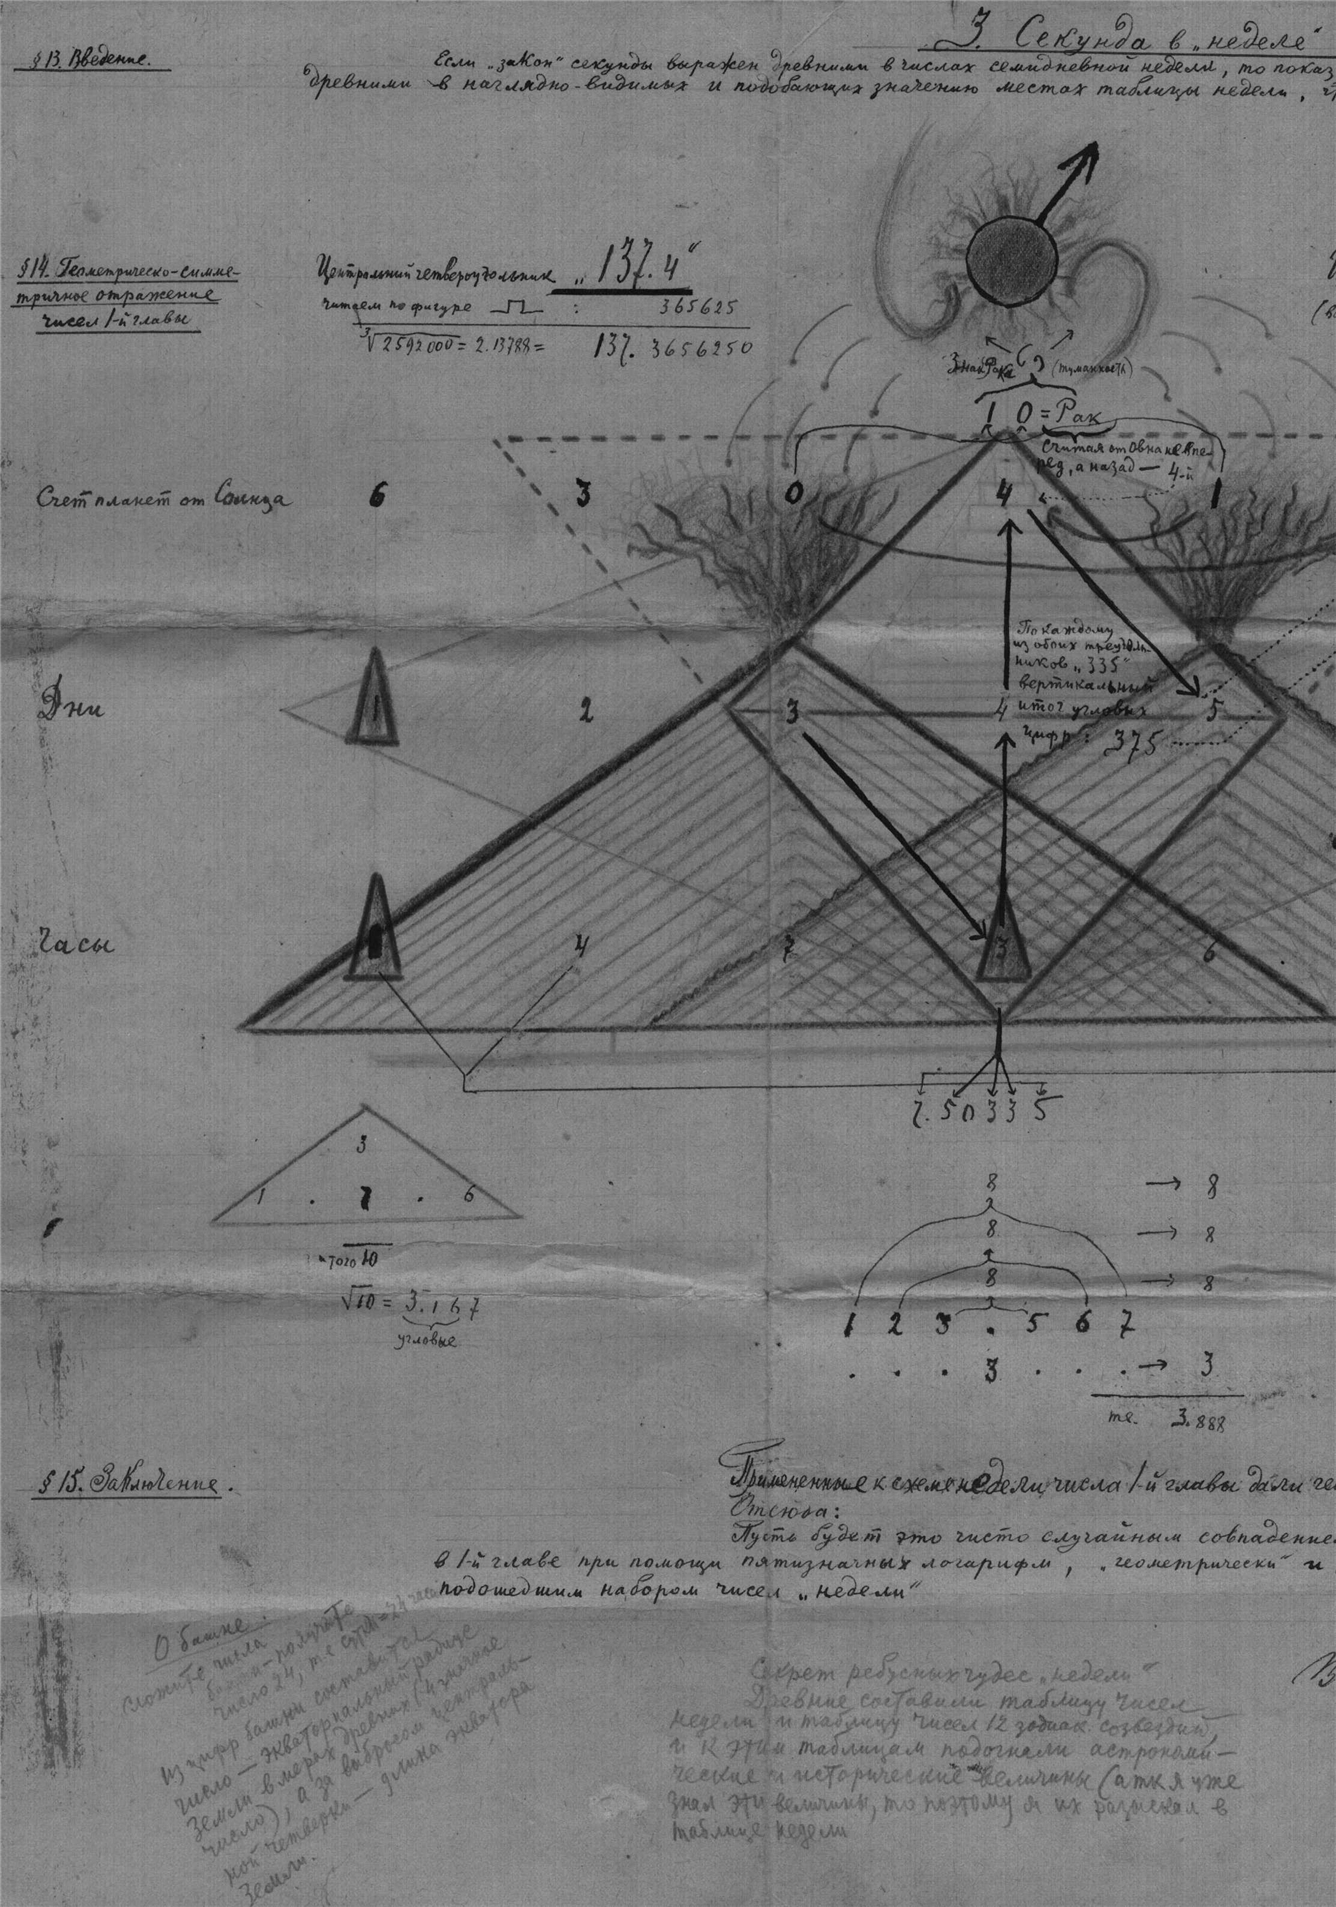 3. Секунда в „неделе“
§ 13. Введение.
Если „закон“ секунды выражен древними в числах семидневной недели, то показ
древними в наглядно-видимых и подобающих значению местах таблицы недели,
§ 14. Геометрическо-симме-
тричное отражение
чисел 1-й главы
Центральный четвероугольник „137.4“
читаем по фигуре : 365625
∛2592000 = 2.13788 = 137.3656250
Знак Рака (туманность)
1 0 = Рак
Считая от Овна не впе-
ред, а назад — 4-й
Счет планет от Солнца 6 3 0 4 1
По каждому
из обоих треуголь-
ников „335“
вертикальный
итог угловых
цифр: 375
Дни 1 2 3 4 5
Часы 4 7 3 6
7.50335
3
1 . 7 . 6
итого 10
√10 = 3.167
угловые
8 → 8
8 → 8
8 → 8
1 2 3 . 5 6 7
. . . 3 . . . → 3
те. 3.888
§ 15. Заключение.
Примененные к схеме недели числа 1-й главы дали
Отсюда:
Пусть будет это чисто случайным совпадение
в 1-й главе при помощи пятизначных логарифм, „геометрически“ и
подошедшим набором чисел „недели“
О башне.
Сложите числа
башни — получите
число 24, т.е. сутки = 24 часа
Из цифр башни составится
число — экваториальный радиус
Земли в мерах древних (4 значное
число), а за выбросом централь-
ной четверки — длина экватора
Земли.
Секрет ребусных чудес „недели“
Древние составили таблицу чисел
недели и таблицу чисел 12 зодиак. созвездий,
и к этим таблицам подогнали астрономи-
ческие и исторические величины (а тк я уже
знал эти величины, то поэтому я их разыскал в
таблице недели